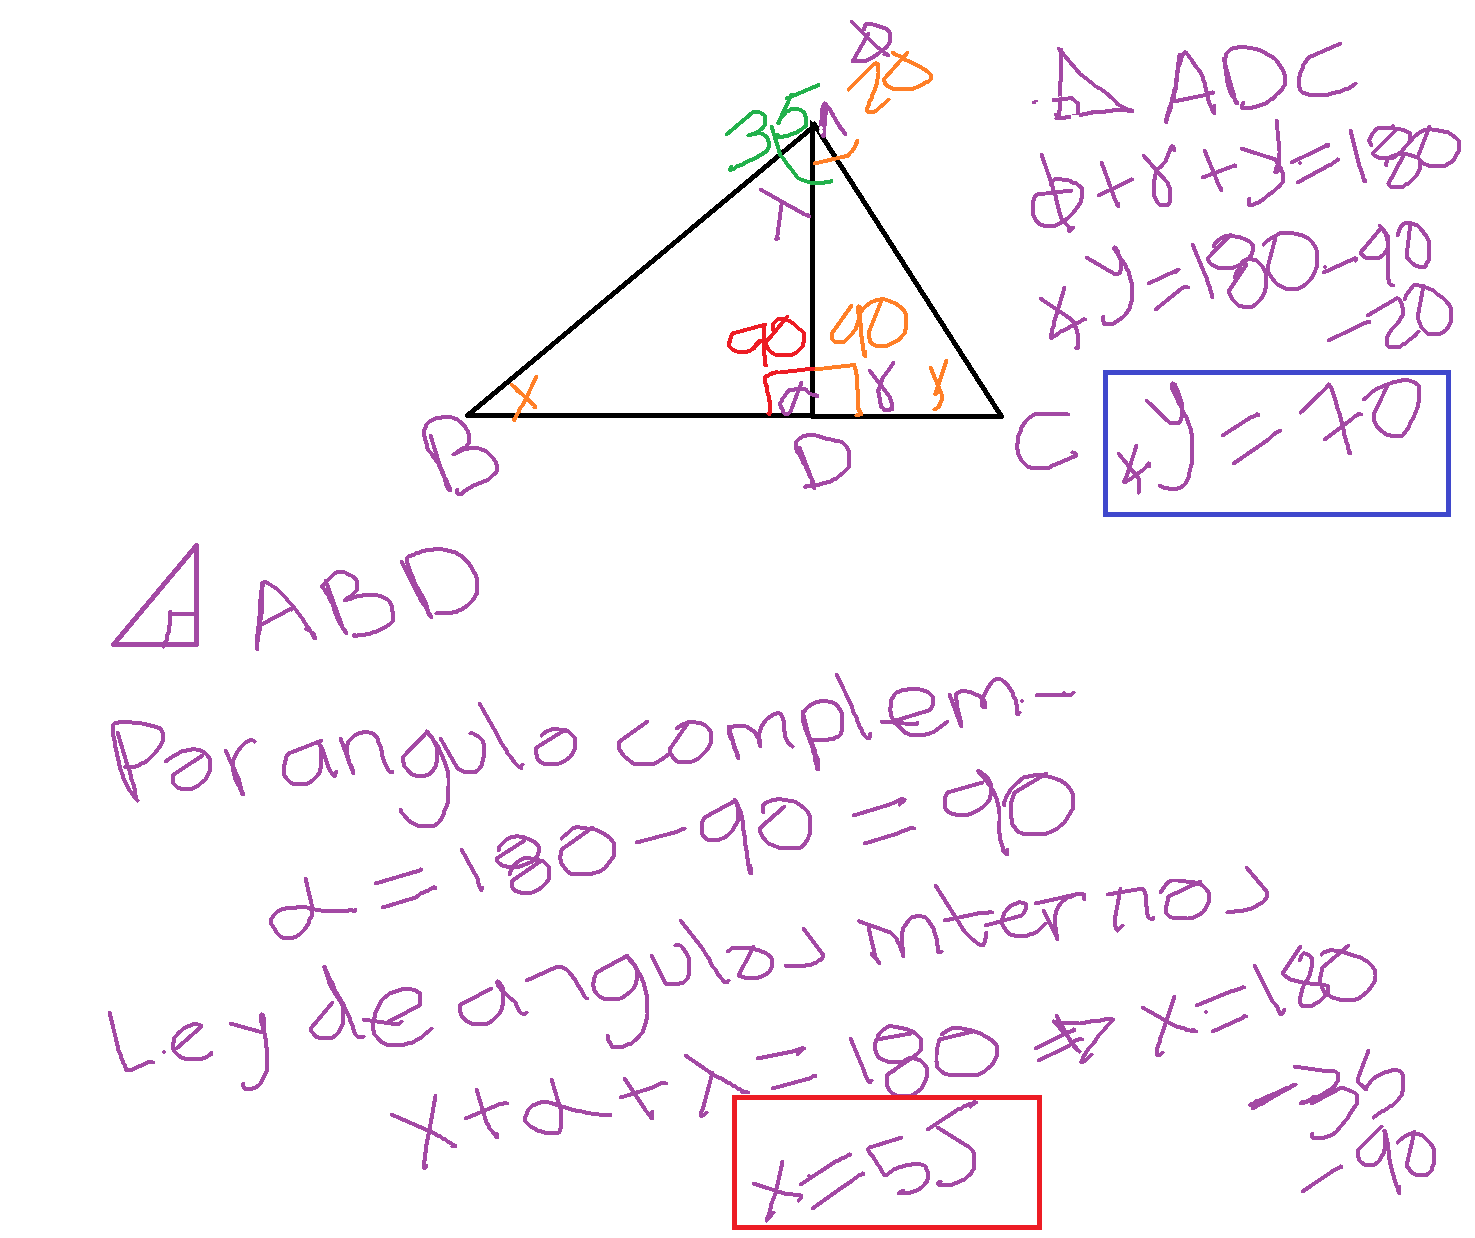 θ
20
35
A
λ
90
90
x
α
γ
y
B
D
C
ADC
θ+γ+y=180
*y=180-90
-20
*y=70
ABD
Por angulo complem-
α=180-90=90
Ley de angulos internos
x+α+λ=180 ⇒ x=180
-35
-90
x=55